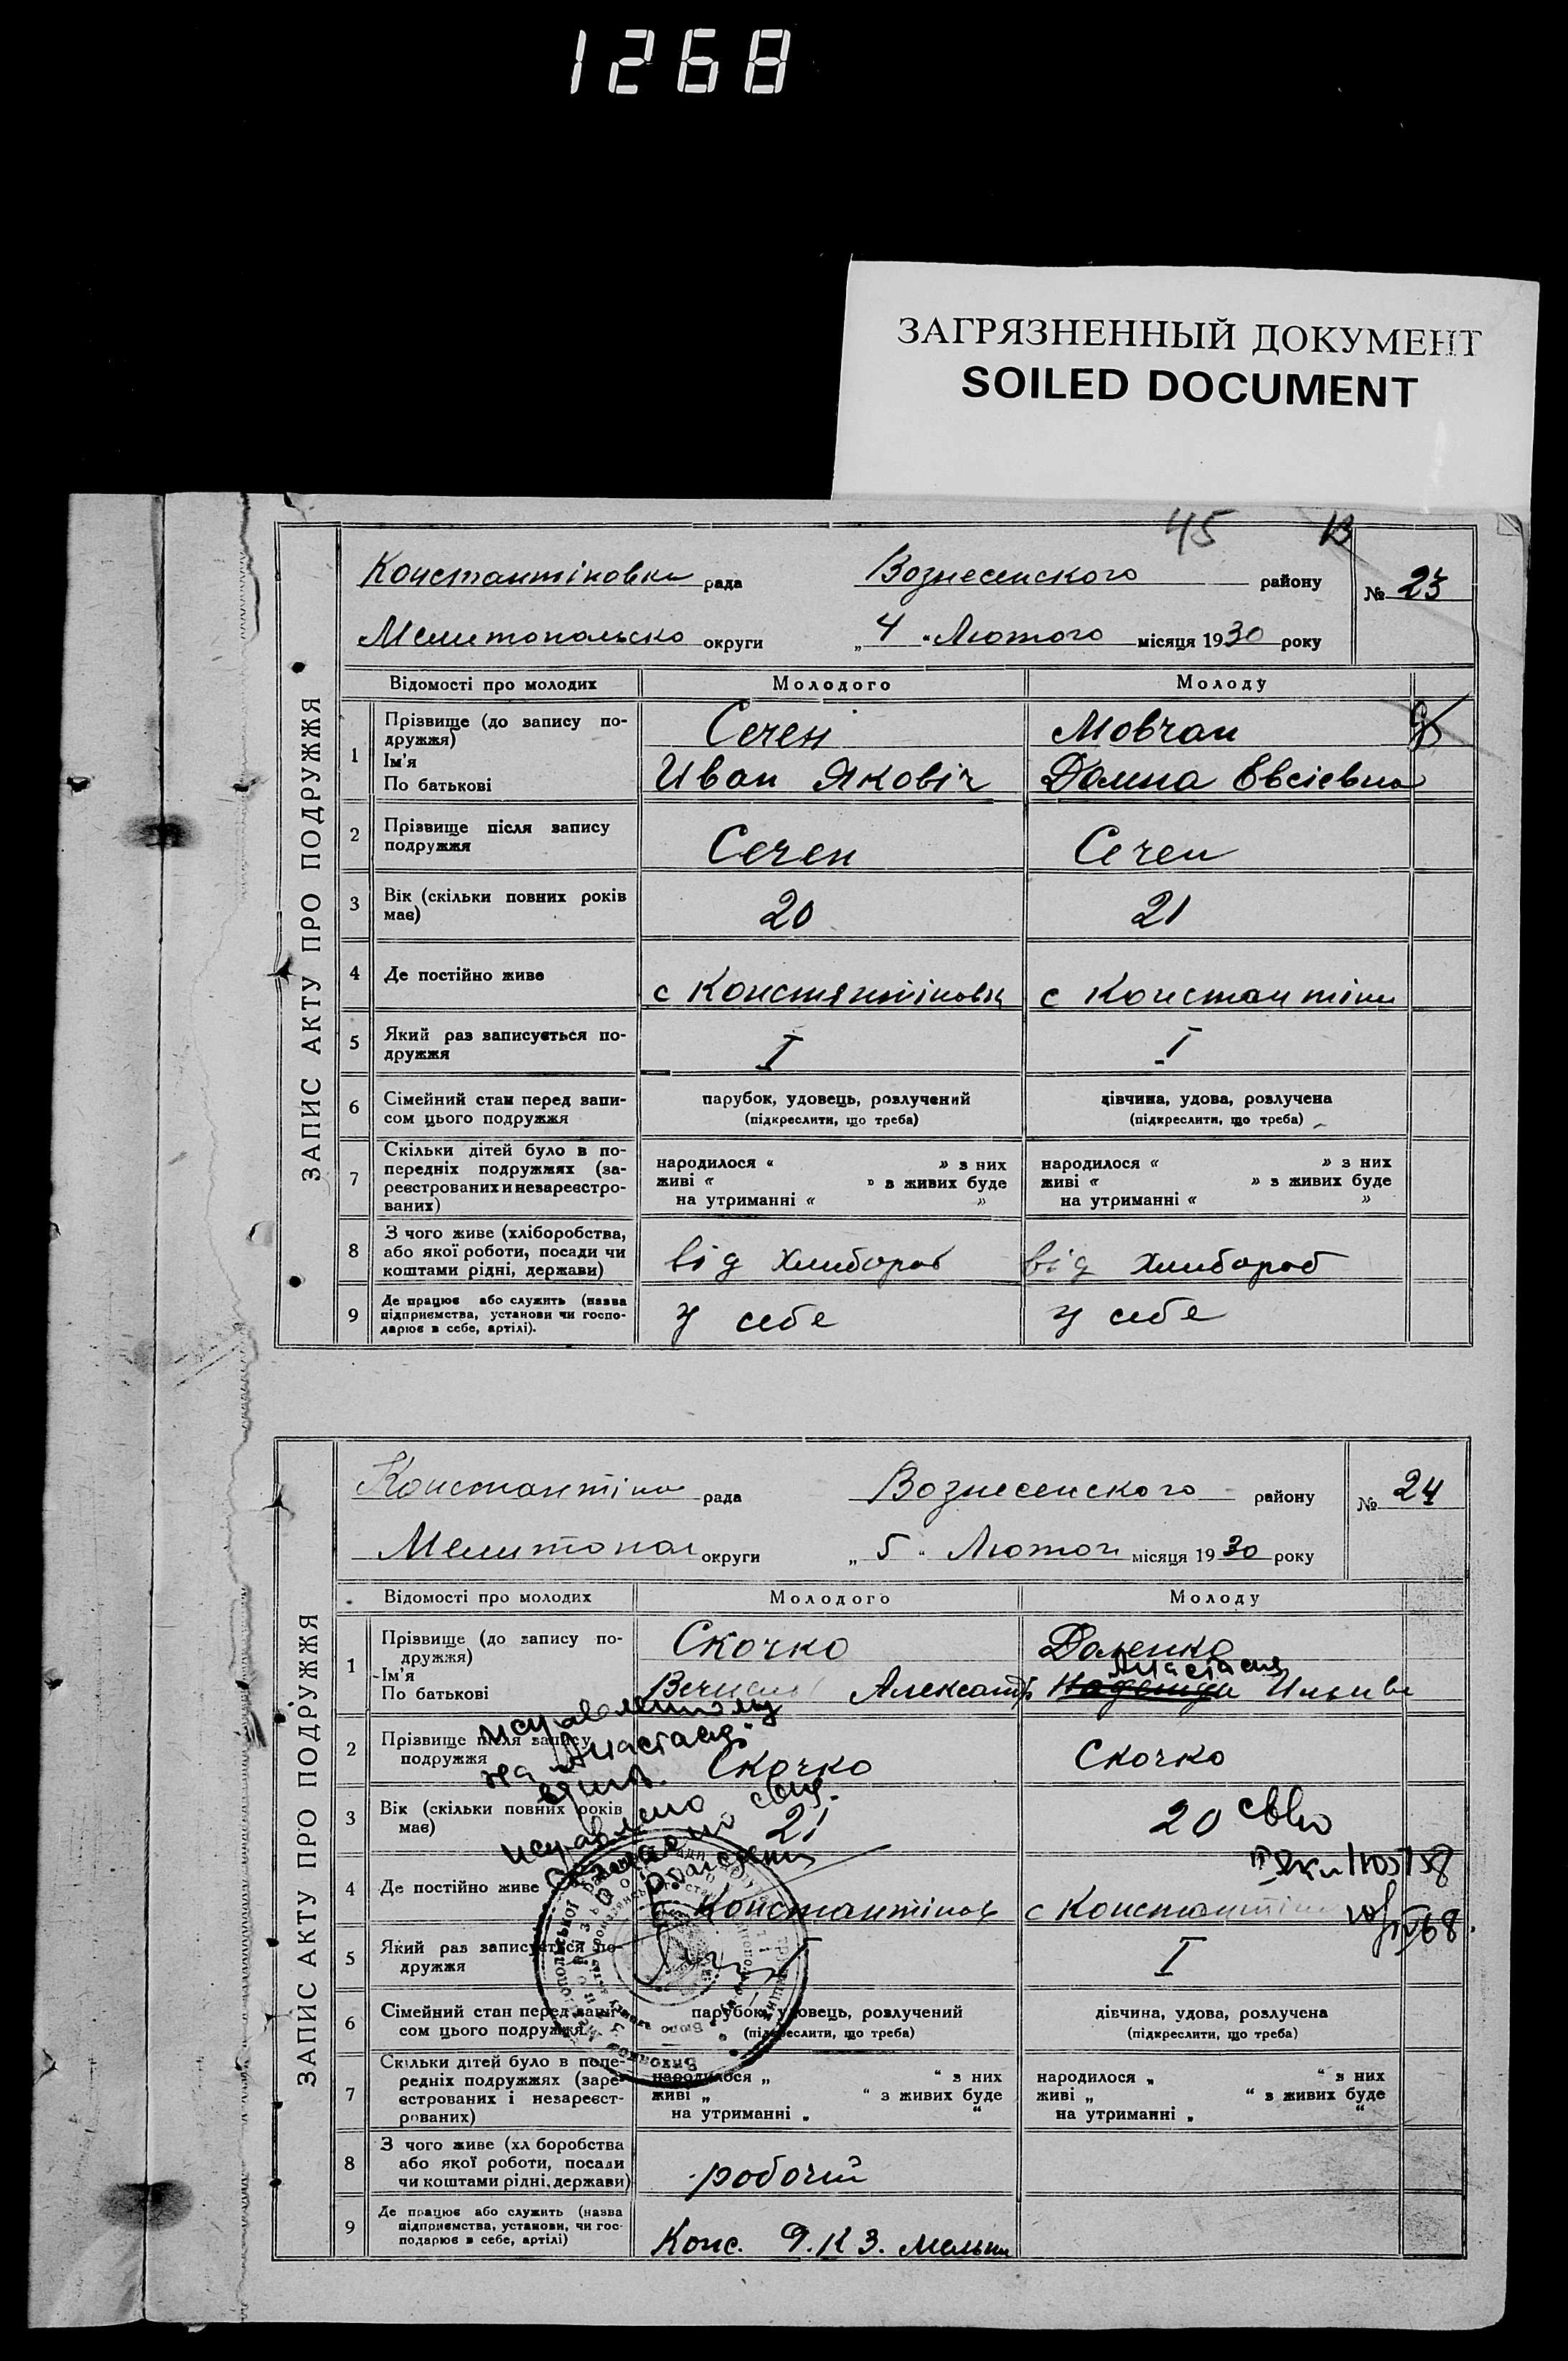 1268
ЗАГРЯЗНЕННЫЙ ДОКУМЕНТ
SOILED DOCUMENT
45
ЗАПИС АКТУ ПРО ПОДРУЖЖЯ
Константіновка рада Вознесенского району № 23
Мелитопольско округи „ 4 “ Лютого місяця 1930 року
Відомості про молодих Молодого Молоду
1 Прізвище (до запису по-
дружжя) Сечен Мовчан
Ім'я
По батькові Иван Яковіч Домна Евсієвна
2 Прізвище після запису
подружжя Сечен Сечен
3 Вік (скільки повних років
має) 20 21
4 Де постійно живе с Константіновка с Константіни
5 Який раз записується по-
дружжя I I
6 Сімейний стан перед запи-
сом цього подружжя
парубок, удовець, розлучений дівчина, удова, розлучена
(підкреслити, що треба) (підкреслити, що треба)
7 Скільки дітей було в по-
передніх подружжях (за-
реєстрованих и незареєстро-
ваних)
народилося « » з них народилося « » з них
живі « » в живих буде живі « » з живих буде
на утриманні « » на утриманні « »
8 З чого живе (хліборобства,
або якої роботи, посади чи
коштами рідні, держави) від хлибороб від хлибороб
9 Де працює або служить (назва
підприємства, установи чи госпо-
дарює в себе, артілі). У себе У себе
ЗАПИС АКТУ ПРО ПОДРУЖЖЯ
Константіно рада Вознесенского району № 24
Мелитопол округи „ 5 “ Лютого місяця 1930 року
Відомості про молодих Молодого Молоду
1 Прізвище (до запису по-
дружжя) Скочко Доленко
Анастасія
Ім'я
По батькові Александр
2 Прізвище після запису
подружжя Скочко Скочко
исправленному
на Анастасия
исправлено
3 Вік (скільки повних років
має) 21 20
4 Де постійно живе Константінов с Константіно
5 Який раз записується по-
дружжя I I
6 Сімейний стан перед запи-
сом цього подружжя
парубок, удовець, розлучений дівчина, удова, розлучена
(підкреслити, що треба) (підкреслити, що треба)
7 Скільки дітей було в попе-
редніх подружжях (заре-
єстрованих і незареєст-
рованих)
народилося „ “ з них народилося „ “ з них
живі „ “ з живих буде живі „ “ з живих буде
на утриманні „ “ на утриманні „ “
8 З чого живе (хл боробства
або якої роботи, посади
чи коштами рідні, держави) робочий
9 Де працює або служить (назва
підприємства, установи, чи гос-
подарює в себе, артілі) Конс.